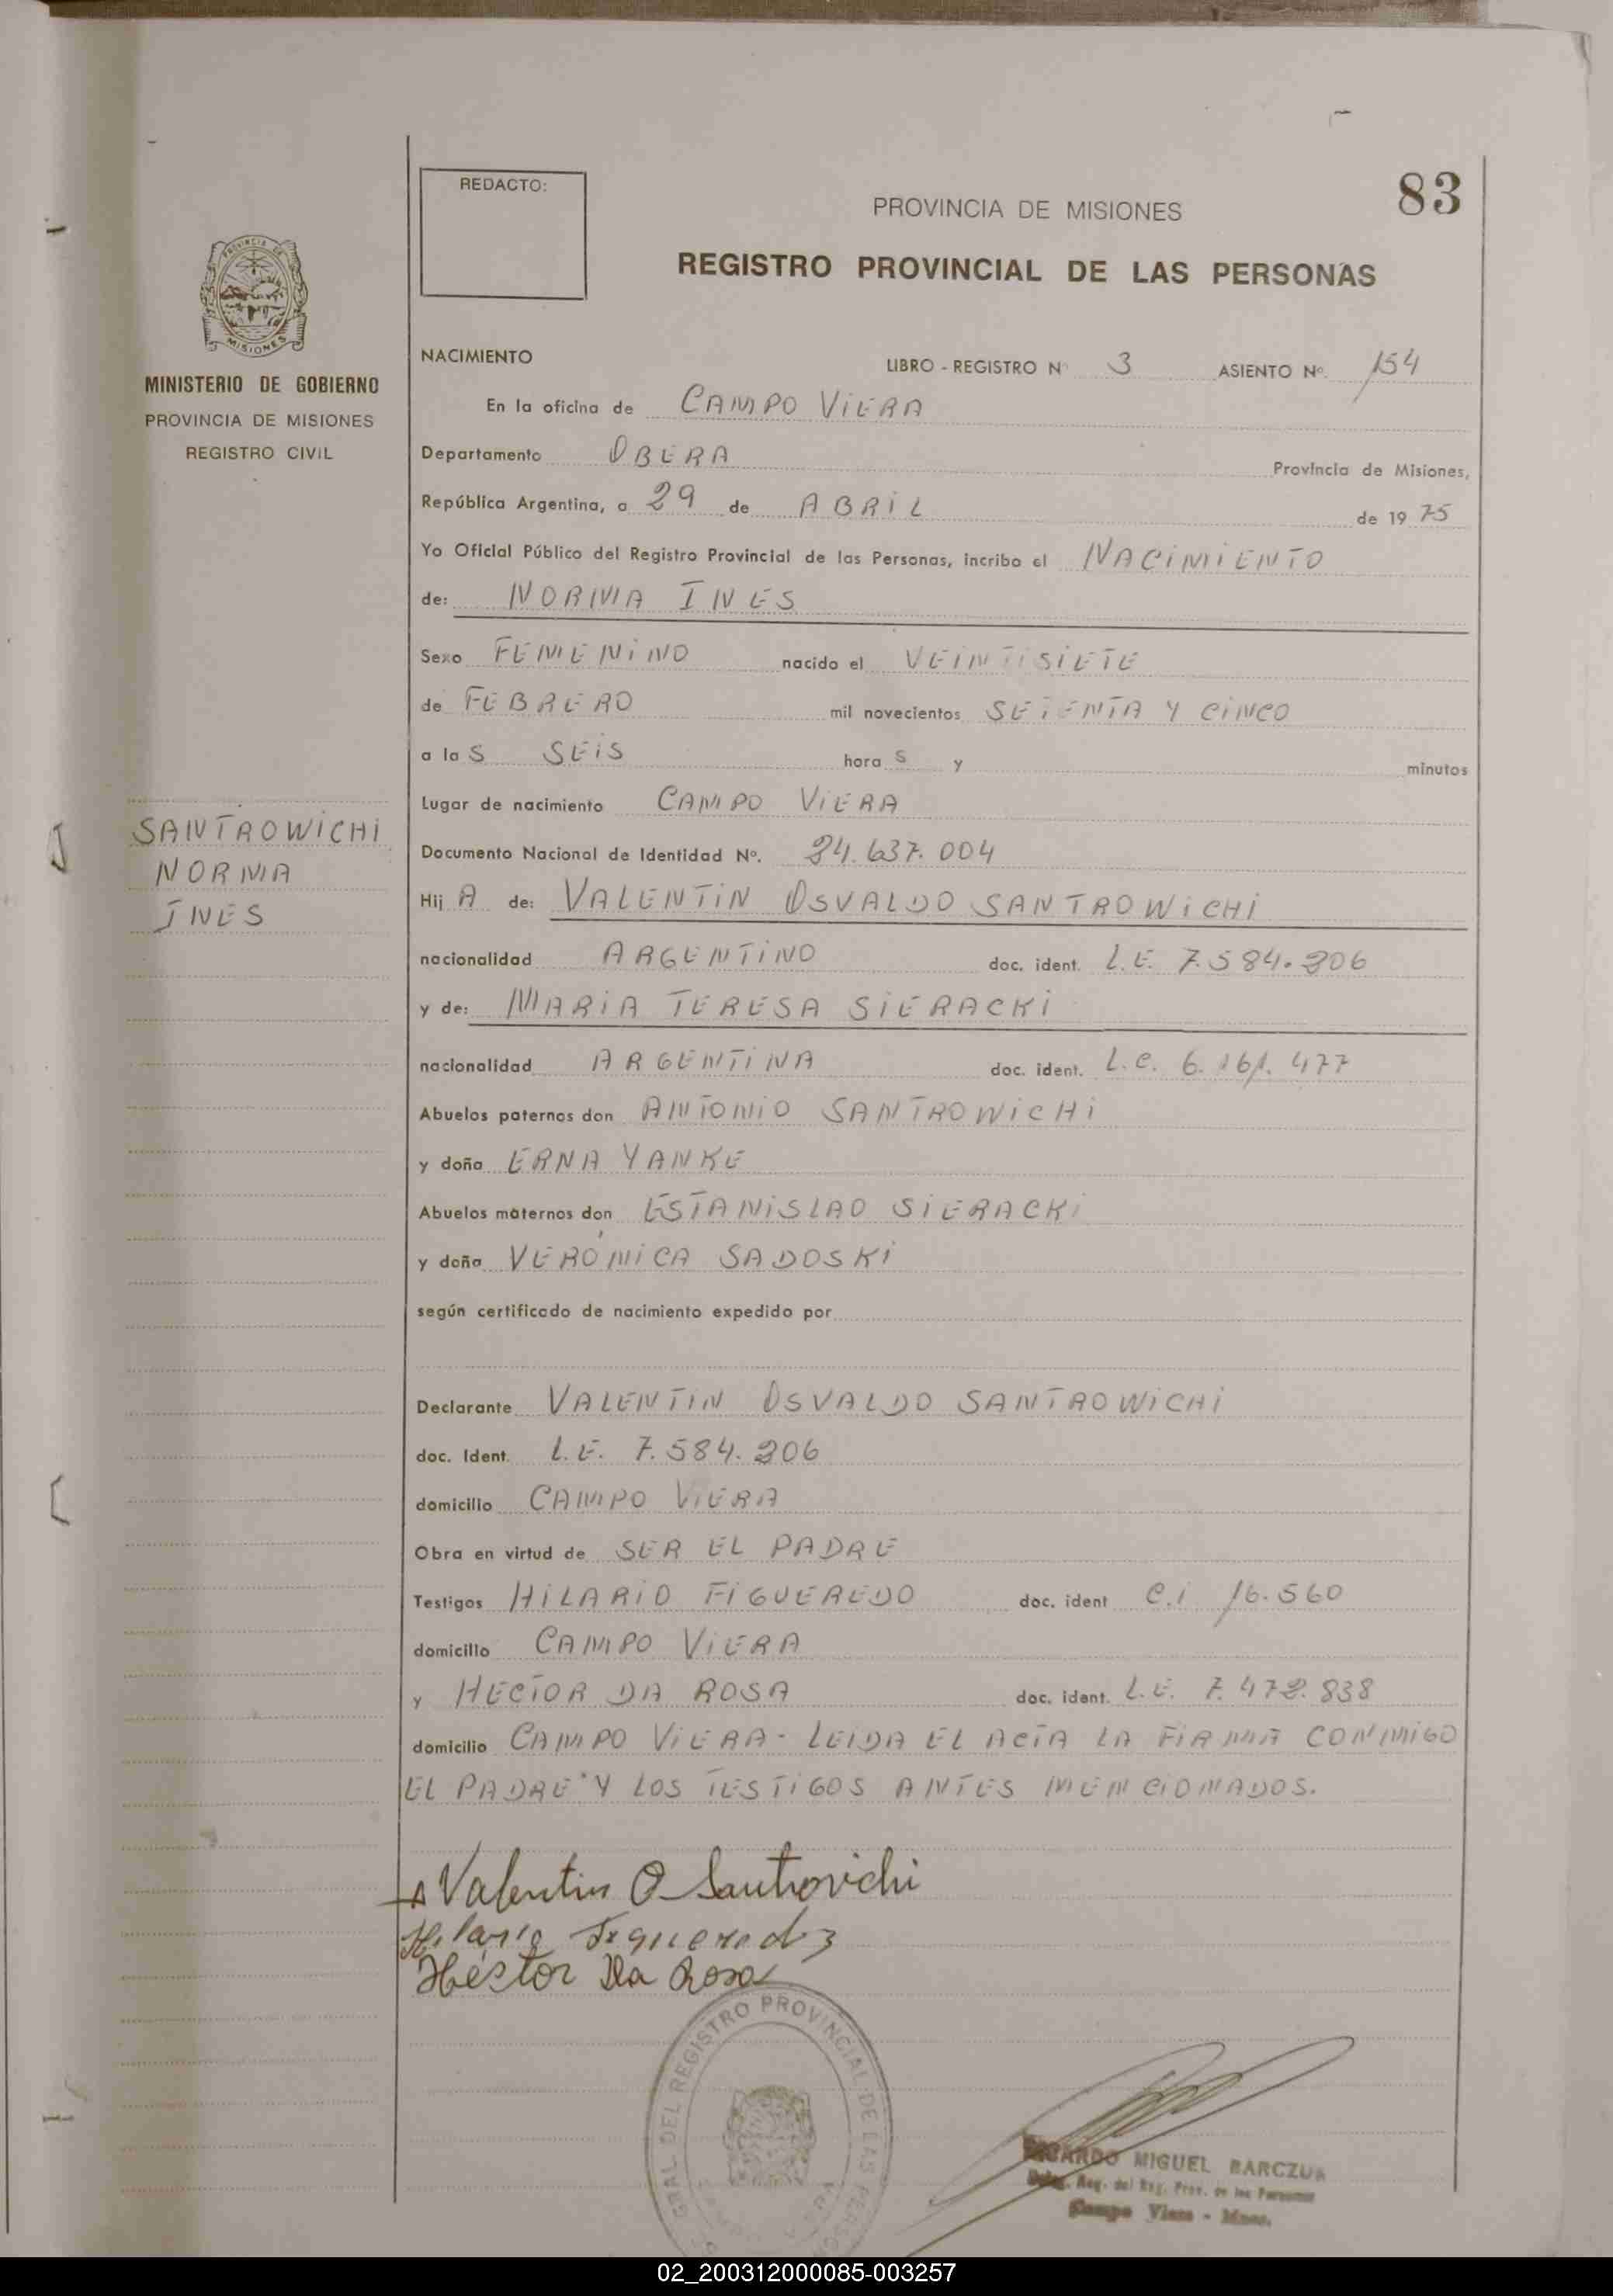 REDACTO:
83
PROVINCIA DE MISIONES
REGISTRO PROVINCIAL DE LAS PERSONAS
PROVINCIA DE
MISIONES
MINISTERIO DE GOBIERNO
PROVINCIA DE MISIONES
REGISTRO CIVIL
NACIMIENTO LIBRO - REGISTRO Nº 3 ASIENTO Nº. 154
En la oficina de CAMPO VIERA
Departamento OBERA Provincia de Misiones,
República Argentina, a 29 de ABRIL de 1975
Yo Oficial Público del Registro Provincial de las Personas, incribo el NACIMIENTO
de: NORMA INES
Sexo FEMENINO nacido el VEINTISIETE
de FEBRERO mil novecientos SETENTA Y CINCO
a las SEIS horas y minutos
Lugar de nacimiento CAMPO VIERA
SANTROWICHI
NORMA
INES
Documento Nacional de Identidad Nº. 24.637.004
Hij A de: VALENTIN OSVALDO SANTROWICHI
nacionalidad ARGENTINO doc. ident. L.E. 7.584.206
y de: MARIA TERESA SIERACKI
nacionalidad ARGENTINA doc. ident. L.C. 6.161.477
Abuelos paternos don ANTONIO SANTROWICHI
y doña ERNA YANKE
Abuelos maternos don ESTANISLAO SIERACKI
y doña VERÓNICA SADOSKI
según certificado de nacimiento expedido por
Declarante VALENTIN OSVALDO SANTROWICHI
doc. Ident. L.E. 7.584.206
domicilio CAMPO VIERA
Obra en virtud de SER EL PADRE
Testigos HILARIO FIGUEREDO doc. ident C.i 16.560
domicilio CAMPO VIERA
y HECTOR DA ROSA doc. ident. L.E. 7.472.838
domicilio CAMPO VIERA - LEIDA EL ACTA LA FIRMA CONMIGO
EL PADRE Y LOS TESTIGOS ANTES MENCIONADOS.
Valentin O Santrovichi
Hilario Figueredo
Héctor Da Rosa
GRAL DEL REGISTRO PROVINCIAL DE LAS
RICARDO MIGUEL BARCZUK
Reg. del Reg. Prov. de las Personas
Campo Viera - Mnes.
02_200312000085-003257